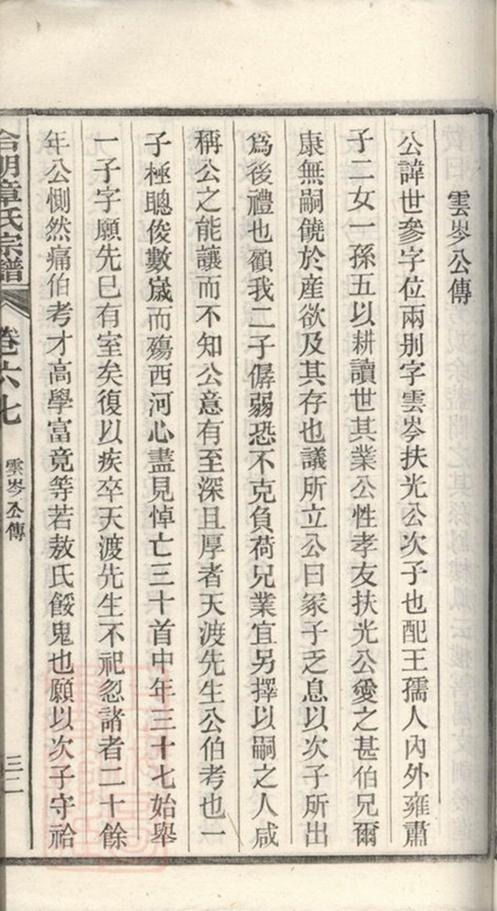 雲岑公傳
公諱世參字位兩別字雲岑扶光公次子也配王孺人內外雍肅
子二女一孫五以耕讀世其業公性孝友扶光公愛之甚伯兄爾
康無嗣饒於產欲及其存也議所立公曰冢子乏息以次子所出
爲後禮也顧我二子孱弱恐不克負荷兄業宜另擇以嗣之人咸
稱公之能讓而不知公意有至深且厚者天渡先生公伯考也一
子極聰俊數歲而殤西河心盡見悼亡三十首中年三十七始舉
一子字願先巳有室矣復以疾卒天渡先生不祀忽諸者二十餘
年公惻然痛伯考才高學富竟等若敖氏餒鬼也願以次子守祫
合朙章氏宗譜
卷六七
雲岑公傳
三二